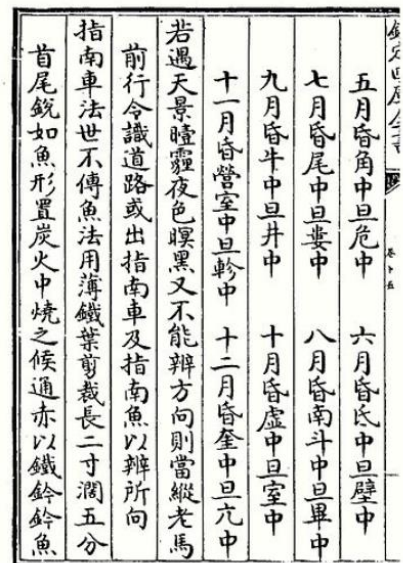 欽定四庫全書
卷十五
五月昏角中旦危中 六月昏氐中旦壁中
七月昏尾中旦婁中 八月昏南斗中旦畢中
九月昏牛中旦井中 十月昏虛中旦室中
十一月昏營室中旦軫中 十二月昏奎中旦亢中
若遇天景曀霾夜色暝黑又不能辨方向則當縱老馬
前行令識道路或出指南車及指南魚以辨所向
指南車法世不傳魚法用薄鐵葉剪裁長二寸濶五分
首尾銳如魚形置炭火中燒之候通赤以鐵鈐鈐魚